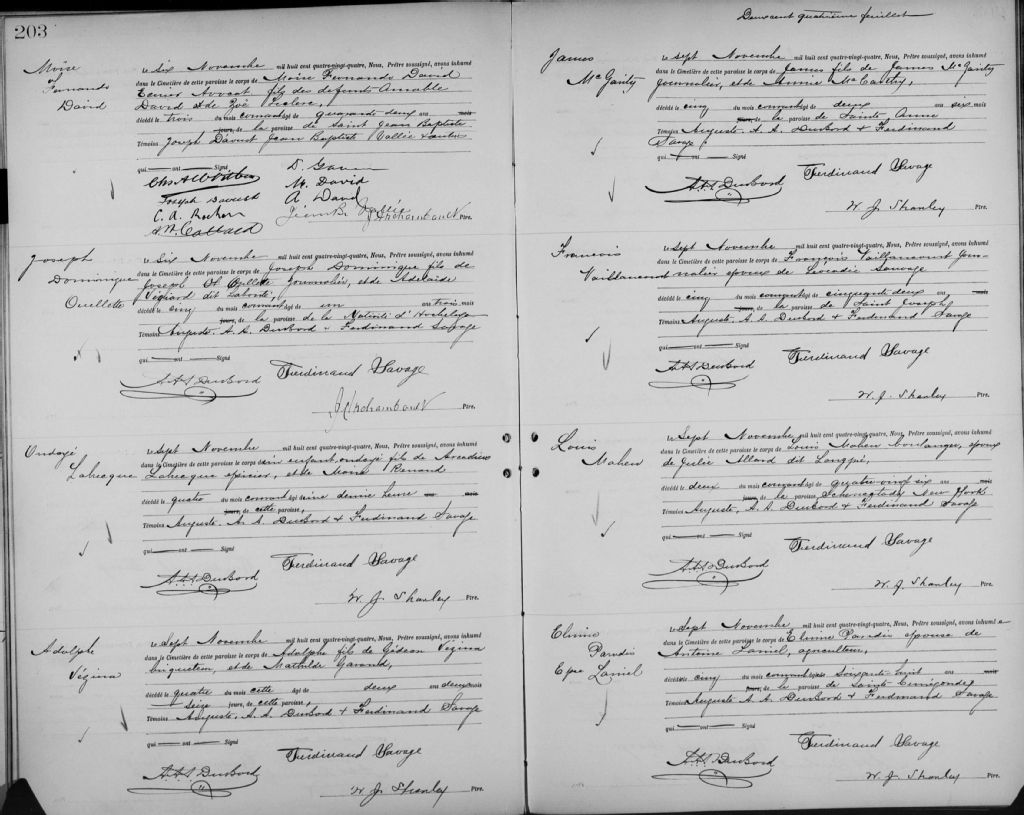 203
Moïse
Fernando
David
Le Six Novembre mil huit cent quatre-vingt-quatre, Nous, Prêtre soussigné, avons inhumé
dans le Cimetière de cette paroisse le corps de Moïse Fernando David
Avocat fils des defunts Amable
David et de Zoë Leclerc,
décédé le trois du mois courant âgé quarante deux ans mois
jours, de la paroisse de Saint Jean Baptiste
Témoins Joseph David Jean Baptiste Vallée
qui ont Signé
Joseph
M. David
A. David
J. Archambault Ptre.
Joseph
Dominique
Ouellette
Le Six Novembre mil huit cent quatre-vingt-quatre, Nous, Prêtre soussigné, avons inhumé
dans le Cimetière de cette paroisse le corps de Joseph Dominique fils de
Joseph Ouellette journalier, et de Adelaïde
dit Laborté,
décédé le cinq du mois courant un ans trois mois
jours, de la paroisse de la Nativité d'Hochelaga
Témoins Auguste. A. A. DesBord & Ferdinand Savage
qui ont Signé
A.A.S DusBord Ferdinand Savage
J. Archambault Ptre.
Ondoyé
Labrecque
Le Sept Novembre mil huit cent quatre-vingt-quatre, Nous, Prêtre soussigné, avons inhumé
dans le Cimetière de cette paroisse le corps d'un enfant ondoyé fils de Arcadius
Labrecque épicier, et de Marie Renaud
décédé le quatre du mois courant âgé une demie heure mois
jours, de cette paroisse,
Témoins Auguste. A. A. DusBord & Ferdinand Savage
qui ont Signé
A.A.S DusBord Ferdinand Savage
W. J. Shanley Ptre.
Adolphe
Vézina
Le Sept Novembre mil huit cent quatre-vingt-quatre, Nous, Prêtre soussigné, avons inhumé
dans le Cimetière de cette paroisse le corps de Adolphe fils de Gédéon Vézina
briqueteur, et de Mathilde Garand,
décédé le quatre du mois cette âgé de deux ans deux mois
Seize jours, de cette paroisse,
Témoins Auguste. A. A. DusBord & Ferdinand Savage
qui ont Signé
A.A.S DusBord Ferdinand Savage
W. J. Shanley Ptre.
Deux cent quatrième feuillet
James
McGarity
Le Sept Novembre mil huit cent quatre-vingt-quatre, Nous, Prêtre soussigné, avons inhumé
dans le Cimetière de cette paroisse le corps de James fils de James McGarity
journalier, et de Annie McCarthy,
décédé le cinq du mois courant âgé deux ans six mois
jours, de la paroisse de Sainte Anne
Témoins Auguste. A. A. DusBord & Ferdinand
Savage
qui ont Signé
A.A.S DusBord Ferdinand Savage
W. J. Shanley Ptre.
Francois
Vaillancourt
Le Sept Novembre mil huit cent quatre-vingt-quatre, Nous, Prêtre soussigné, avons inhumé
dans le Cimetière de cette paroisse le corps de François Vaillancourt jour-
nalier époux de Léocadie Sauvage
décédé le cinq du mois courant âgé cinquante deux ans mois
jours, de la paroisse de Saint Joseph
Témoins Auguste. A. A. DusBord & Ferdinand Savage
qui ont Signé
A.A.S DusBord Ferdinand Savage
W. J. Shanley Ptre.
Louis
Maheu
Le Sept Novembre mil huit cent quatre-vingt-quatre, Nous, Prêtre soussigné, avons inhumé
dans le Cimetière de cette paroisse le corps de Louis Maheu boulanger, époux
de Julie Allard dit Longpré,
décédé le deux du mois courant âgé six ans mois
jours, de la paroisse Schenectady New York
Témoins Auguste. A. A. DusBord & Ferdinand Savage
qui ont Signé
A.A.S DusBord Ferdinand Savage
W. J. Shanley Ptre.
Elmire
Paradis
Epse Laniel
Le Sept Novembre mil huit cent quatre-vingt-quatre, Nous, Prêtre soussigné, avons inhumé
dans le Cimetière de cette paroisse le corps de Elmire Paradis épouse de
Antoine Laniel, agriculteur,
décédée cinq du mois courant âgée Soixante huit ans mois
jours, de la paroisse de Sainte Cunégonde
Témoins Auguste A. A. DusBord & Ferdinand Savage
qui ont Signé
A.A.S DusBord Ferdinand Savage
W. J. Shanley Ptre.